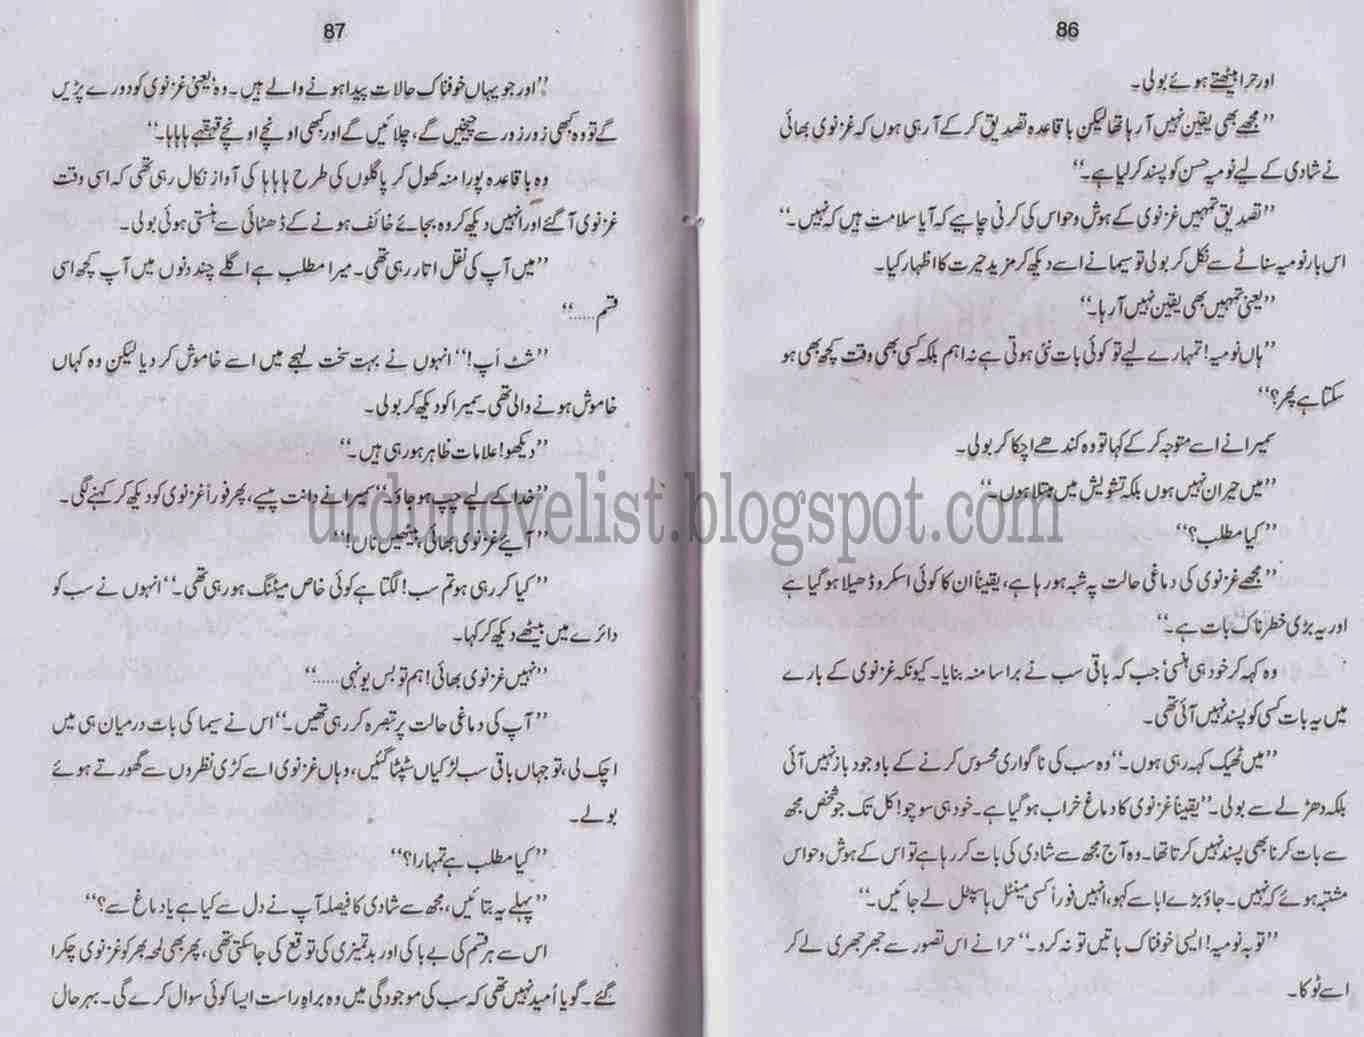 86
اور حرا بیٹھتے ہوئے بولی۔
’’مجھے بھی یقین نہیں آ رہا تھا لیکن باقاعدہ تصدیق کر کے آ رہی ہوں کہ غزنوی بھائی
نے شادی کے لیے نومیہ حسن کو پسند کر لیا ہے۔‘‘
’’تصدیق تمہیں غزنوی کے ہوش و حواس کی کرنی چاہیے کہ آیا سلامت ہیں کہ نہیں۔‘‘
اس بار نومیہ سناٹے سے نکل کر بولی تو سیما نے اسے دیکھ کر مزید حیرت کا اظہار کیا۔
’’یعنی تمہیں بھی یقین نہیں آ رہا۔‘‘
’’ہاں نومیہ! تمہارے لیے تو کوئی بات نئی ہوتی ہے نہ اہم بلکہ کسی بھی وقت کچھ بھی ہو
سکتا ہے پھر؟‘‘
سمیرا نے اسے متوجہ کر کے کہا تو وہ کندھے اچکا کر بولی۔
’’میں حیران نہیں ہوں بلکہ تشویش میں مبتلا ہوں۔‘‘
’’کیا مطلب؟‘‘
’’مجھے غزنوی کی دماغی حالت پہ شبہ ہو رہا ہے، یقیناً ان کا کوئی اسکرو ڈھیلا ہو گیا ہے
اور یہ بڑی خطرناک بات ہے۔‘‘
وہ کہہ کر خود ہی ہنسی‘ جب کہ باقی سب نے برا سا منہ بنایا۔ کیونکہ غزنوی کے بارے
میں یہ بات کسی کو پسند نہیں آئی تھی۔
’’میں ٹھیک کہہ رہی ہوں۔‘‘ وہ سب کی ناگواری محسوس کرنے کے باوجود باز نہیں آئی
بلکہ دھڑلے سے بولی۔ ’’یقیناً غزنوی کا دماغ خراب ہو گیا ہے۔ خود ہی سوچو! کل تک جو شخص مجھ
سے بات کرنا بھی پسند نہیں کرتا تھا۔ وہ آج مجھ سے شادی کی بات کر رہا ہے تو اس کے ہوش و حواس
مشتبہ ہوئے کہ نہیں۔ جاؤ بڑے ابا سے کہو، انہیں فوراً کسی مینٹل ہاسپٹل لے جائیں۔‘‘
’’توبہ نومیہ! ایسی خوفناک باتیں تو نہ کرو۔‘‘ حرا نے اس تصور سے جھرجھری لے کر
اسے ٹوکا۔
87
’’اور جو یہاں خوفناک حالات پیدا ہونے والے ہیں۔ وہ‘ یعنی غزنوی کو دورے پڑیں
گے تو وہ کبھی زور زور سے چیخیں گے، چلائیں گے اور کبھی اونچے اونچے قہقہے ہاہاہا۔‘‘
وہ باقاعدہ پورا منہ کھول کر پاگلوں کی طرح ہاہاہا کی آواز نکال رہی تھی کہ اسی وقت
غزنوی آ گئے اور انہیں دیکھ کر وہ بجائے خائف ہونے کے ڈھٹائی سے ہنستی ہوئی بولی۔
’’میں آپ کی نقل اتار رہی تھی۔ میرا مطلب ہے اگلے چند دنوں میں آپ کچھ اسی
قسم ......‘‘
’’شٹ اَپ!‘‘ انہوں نے بہت سخت لہجے میں اسے خاموش کر دیا لیکن وہ کہاں
خاموش ہونے والی تھی۔ سمیرا کو دیکھ کر بولی۔
’’دیکھو! علامات ظاہر ہو رہی ہیں۔‘‘
’’خدا کے لیے چپ ہو جاؤ۔‘‘ سمیرا نے دانت پیسے، پھر فوراً غزنوی کو دیکھ کر کہنے لگی۔
’’آیئے غزنوی بھائی، بیٹھیں ناں!‘‘
’’کیا کر رہی ہو تم سب! لگتا ہے کوئی خاص میٹنگ ہو رہی تھی۔‘‘ انہوں نے سب کو
دائرے میں بیٹھے دیکھ کر کہا۔
’’نہیں غزنوی بھائی! ہم تو بس یونہی ......‘‘
’’آپ کی دماغی حالت پر تبصرہ کر رہی تھیں۔‘‘ اس نے سیما کی بات درمیان ہی میں
اچک لی، تو جہاں باقی سب لڑکیاں سٹپٹا گئیں، وہاں غزنوی اسے کڑی نظروں سے گھورتے ہوئے
بولے۔
’’کیا مطلب ہے تمہارا؟‘‘
’’پہلے یہ بتائیں، مجھ سے شادی کا فیصلہ آپ نے دل سے کیا ہے یا دماغ سے؟‘‘
اس سے ہر قسم کی بے باکی اور بدتمیزی کی توقع کی جا سکتی تھی، پھر بھی لمحہ بھر کو غزنوی چکرا
گئے۔ گویا اُمید نہیں تھی کہ سب کی موجودگی میں وہ براہِ راست ایسا کوئی سوال کرے گی۔ بہرحال
urdunovelist.blogspot.com